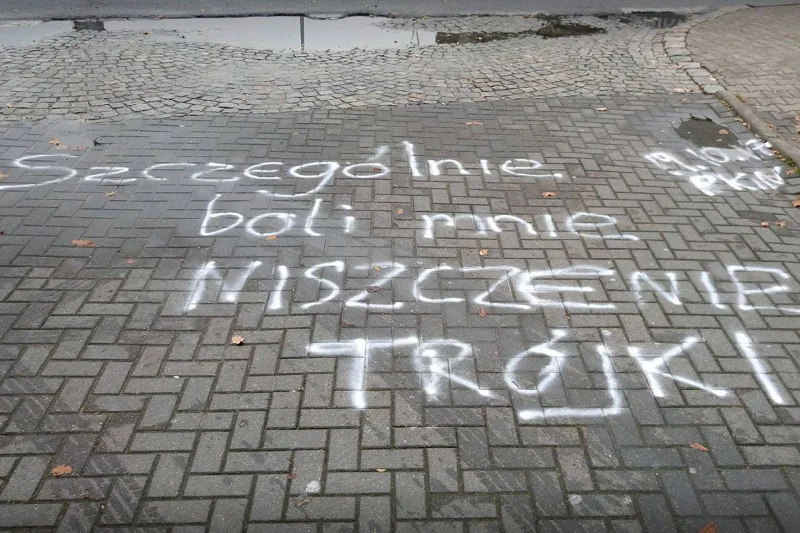 Szczególnie
boli mnie
NISZCZENIE
TRÓJKI